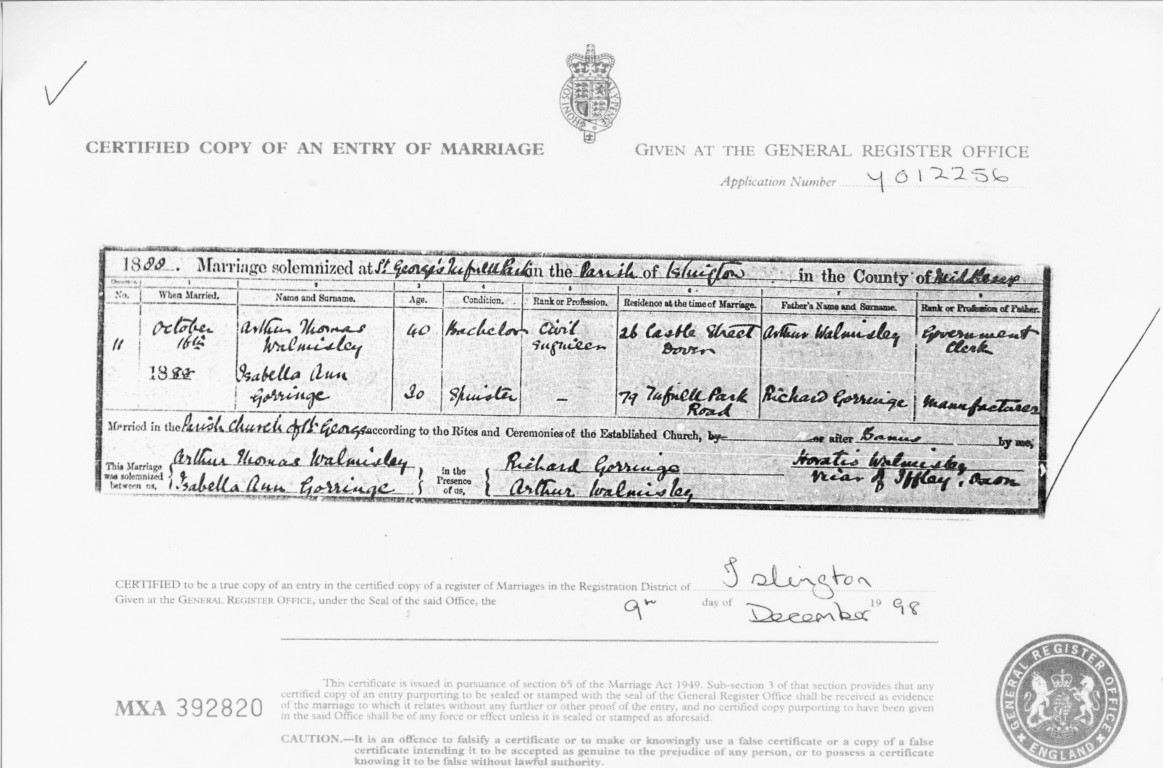 CERTIFIED COPY OF AN ENTRY OF MARRIAGE
GIVEN AT THE GENERAL REGISTER OFFICE
Application Number Y012256
1888. Marriage solemnized at St George's Tufnell Park in the Parish of Islington in the County of Middlesex
No. When Married. Name and Surname. Age. Condition. Rank or Profession. Residence at the time of Marriage. Father's Name and Surname. Rank or Profession of Father.
11 October 16th 1888
Arthur Thomas Walmisley 40 Bachelor Civil Engineer 26 Castle Street Dover Arthur Walmisley Government Clerk
Isabella Ann Gorringe 30 Spinster – 79 Tufnell Park Road Richard Gorringe Manufacturer
Married in the Parish church of St George according to the Rites and Ceremonies of the Established Church, by or after Banns by me,
This Marriage was solemnized between us, Arthur Thomas Walmisley Isabella Ann Gorringe
in the Presence of us, Richard Gorringe Arthur Walmisley
Horatio Walmisley
Vicar of Iffley, Oxon
CERTIFIED to be a true copy of an entry in the certified copy of a register of Marriages in the Registration District of Islington
Given at the GENERAL REGISTER OFFICE, under the Seal of the said Office, the 9th day of December 1998
MXA 392820
This certificate is issued in pursuance of section 65 of the Marriage Act 1949. Sub-section 3 of that section provides that any
certified copy of an entry purporting to be sealed or stamped with the seal of the General Register Office shall be received as evidence
of the marriage to which it relates without any further or other proof of the entry, and no certified copy purporting to have been given
in the said Office shall be of any force or effect unless it is sealed or stamped as aforesaid.
CAUTION.—It is an offence to falsify a certificate or to make or knowingly use a false certificate or a copy of a false
certificate intending it to be accepted as genuine to the prejudice of any person, or to possess a certificate
knowing it to be false without lawful authority.
GENERAL REGISTER OFFICE
ENGLAND